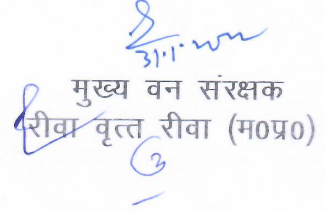 मुख्य वन संरक्षक
रीवा वृत्त रीवा (म0प्र0)